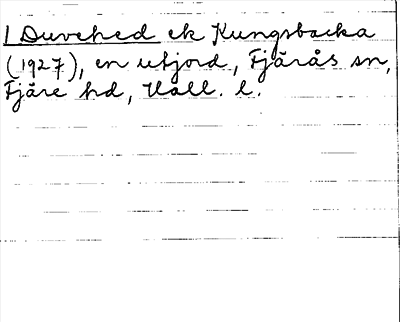 1 Duvehed ek Kungsbacka
(1927), en utjord, Fjärås sn,
Fjäre hd, Hall. l.